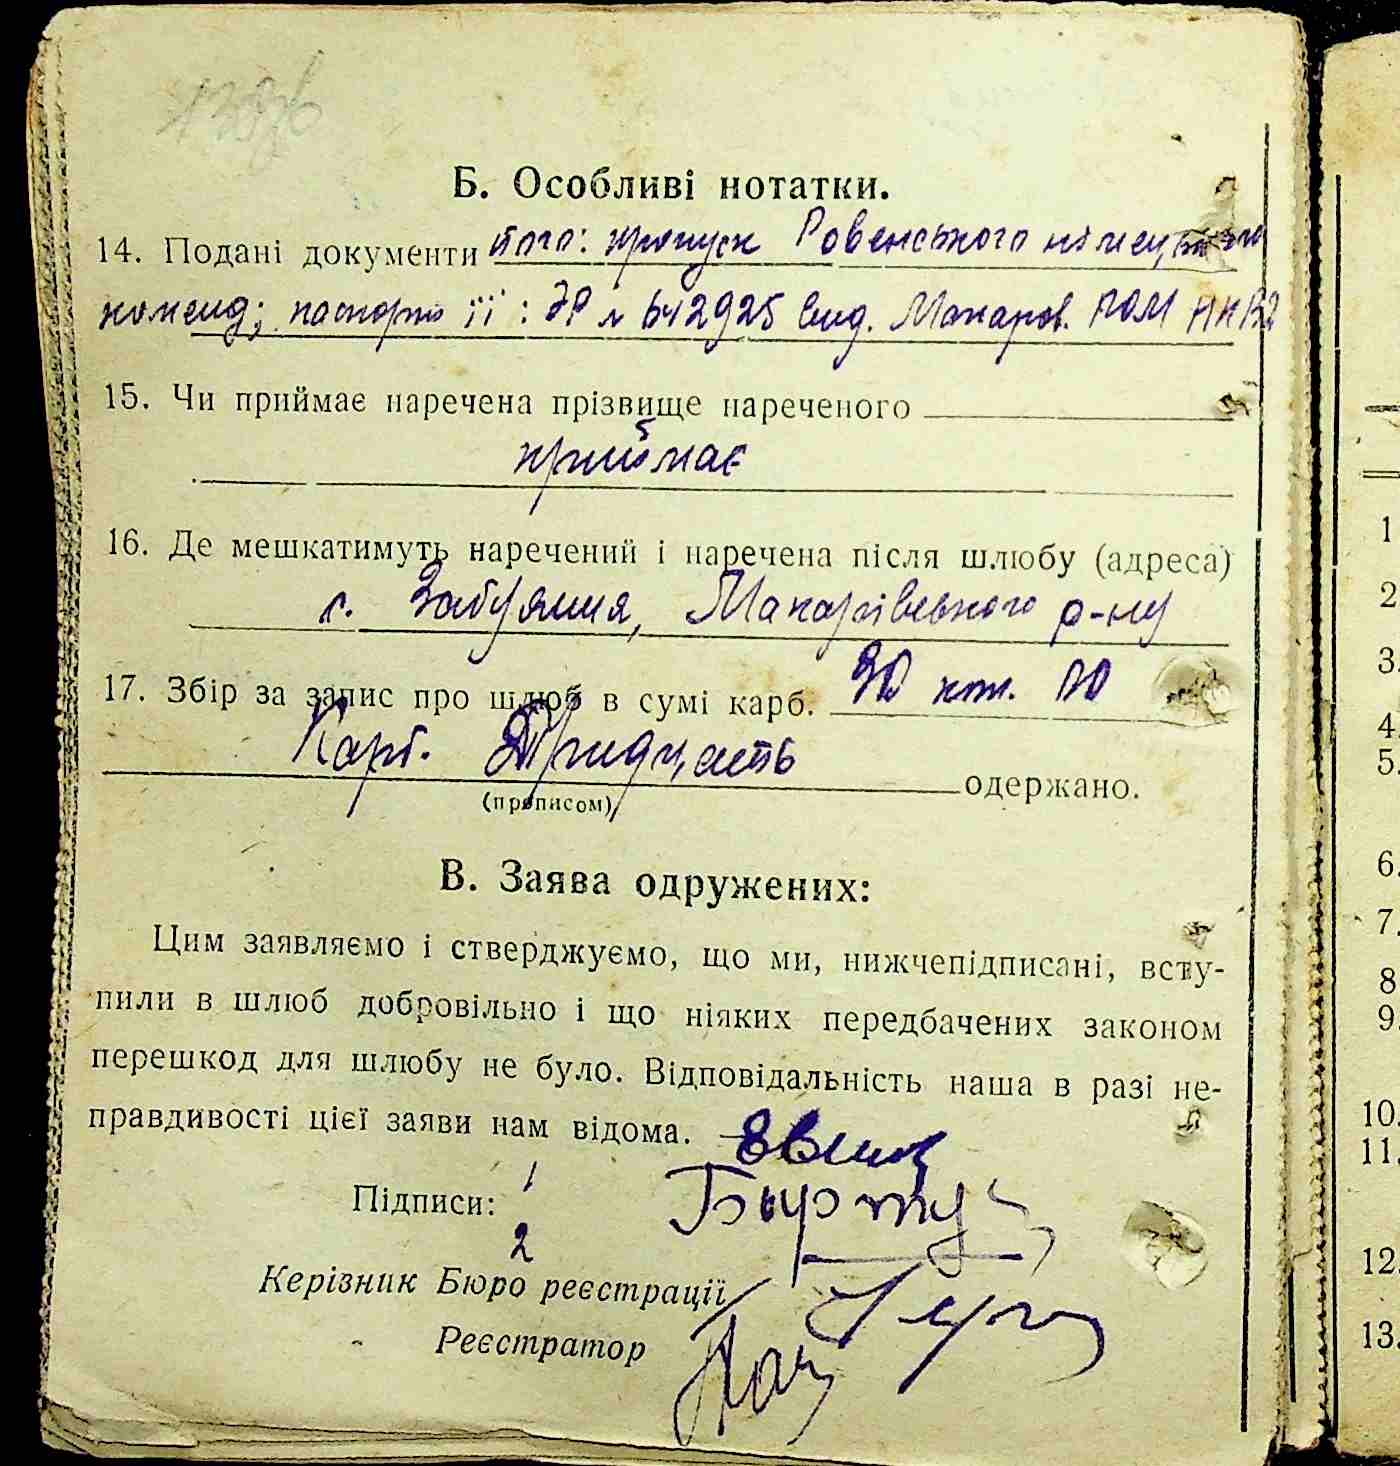 Б. Особливі нотатки.
14. Подані документи його: пропуск Ровенського німецького
коменд; паспорт її: ЭР № 642925 вид. Макаров. РОМ НКВД
15. Чи приймає наречена прізвище нареченого
приймає
16. Де мешкатимуть наречений і наречена після шлюбу (адреса)
с. Забуяння, Макарівського р-ну
17. Збір за запис про шлюб в сумі карб. 30 коп. 00
Карб. Тридцать одержано.
(прописом)
В. Заява одружених:
Цим заявляємо і стверджуємо, що ми, нижчепідписані, всту-
пили в шлюб добровільно і що ніяких передбачених законом
перешкод для шлюбу не було. Відповідальність наша в разі не-
правдивості цієї заяви нам відома.
Підписи: 1
2
Керівник Бюро реєстрації
Реєстратор
1
2
3.
4.
5.
6.
7.
8
9.
10.
11.
12.
13.